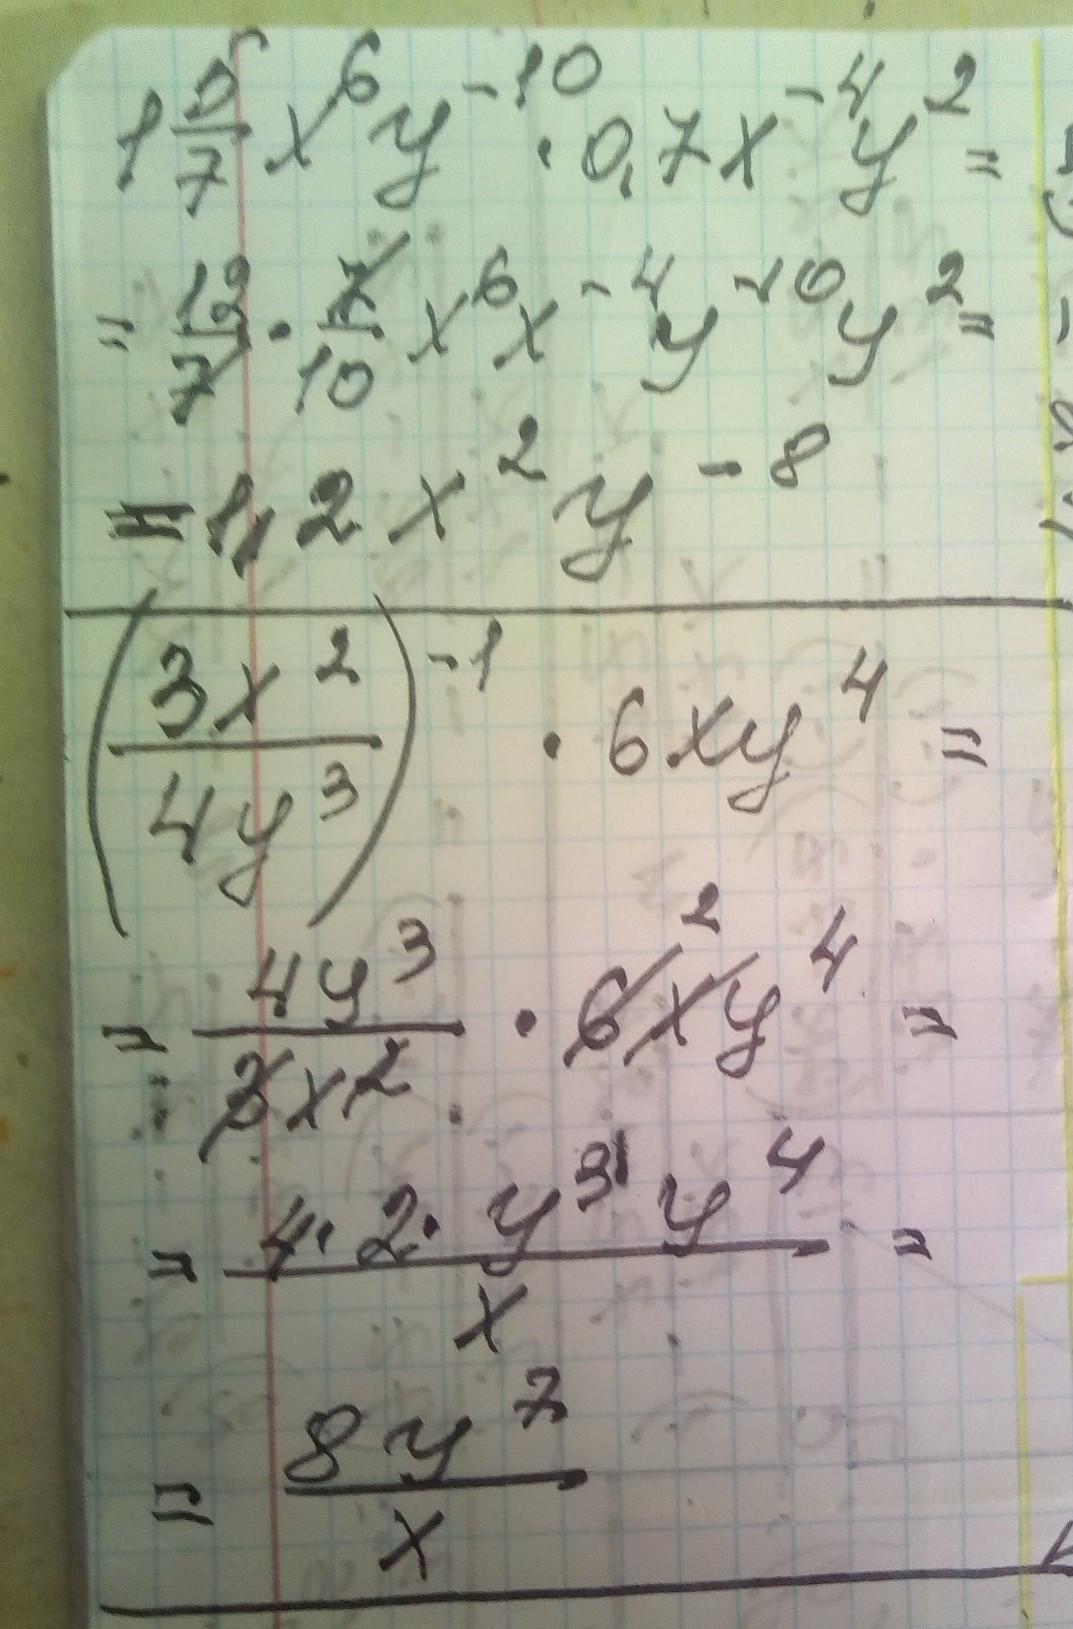 1 5/7 x⁶y⁻¹⁰ · 0,7x⁻⁴y² =
= 12/7 · 7/10 x⁶x⁻⁴y⁻¹⁰y² =
= 1,2x²y⁻⁸
(3x²/4y³)⁻¹ · 6xy⁴ =
2
= 4y³/3x² · 6xy⁴ =
= 4·2·y³·y⁴/x =
= 8y⁷/x